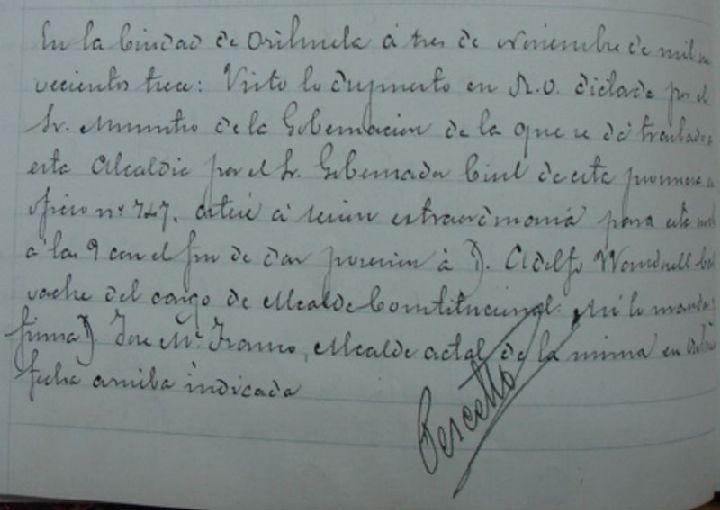 En la Ciudad de Orihuela á tres de Noviembre de mil no
vecientos trece: Visto lo dispuesto en R.O. dictada por el
Sr. Ministro de la Gobernación de la que se dá traslado a
esta Alcaldia por el Sr. Gobernador Civil de esta provincia en
oficio nº 747. citese á sesion extraordinaria para esta
á las 9 con el fin de dar posesion á D. Adolfo Wandosell Cal
vache del cargo de Alcalde Constitucional. Asi lo manda y
firma D. Jose Mª Franco, Alcalde actal de la misma en
fecha arriba indicada